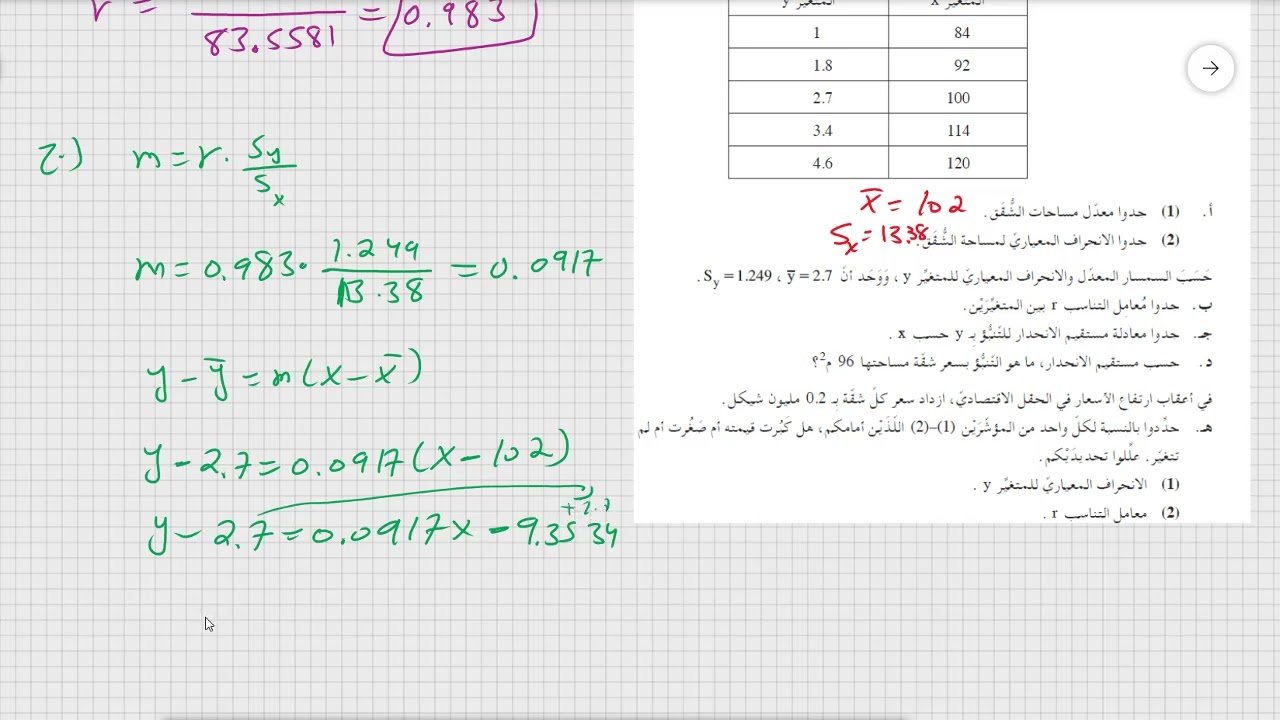 r = ——— = 0.983
83.5581
2.) m = r · Sy / Sx
m = 0.983 · 1.249 / 13.38 = 0.0917
y - ȳ = m(x - x̄)
y - 2.7 = 0.0917(x - 102)
+2.7
y - 2.7 = 0.0917x - 9.3534
المتغير y المتغير x
1 84
1.8 92
2.7 100
3.4 114
4.6 120
x̄ = 102
أ. (1) حدوا معدّل مساحات الشُّقَق.
Sx = 13.38
(2) حدوا الانحراف المعياريّ لمساحة الشُّقَق.
حَسَبَ السمسار المعدّل والانحراف المعياريّ للمتغيِّر y ، وَوَجَد أنّ ȳ = 2.7 ، Sy = 1.249 .
ب. حدوا مُعامِل التناسب r بين المتغيِّرَيْن.
جـ. حدوا معادلة مستقيم الانحدار للتّنبُّؤ بـ y حسب x .
د. حسب مستقيم الانحدار، ما هو التّنبُّؤ بسعر شقّة مساحتها 96 م²؟
في أعقاب ارتفاع الأسعار في الحقل الاقتصاديّ، ازداد سعر كلّ شقّة بـ 0.2 مليون شيكل.
هـ. حدِّدوا بالنسبة لكلّ واحد من المؤشّرَيْن (1)–(2) اللّذَيْن أمامكم، هل كَبُرت قيمته أم صَغُرت أم لم
تتغيّر. علِّلوا تحديدَيْكم.
(1) الانحراف المعياريّ للمتغيِّر y .
(2) معامل التناسب r .